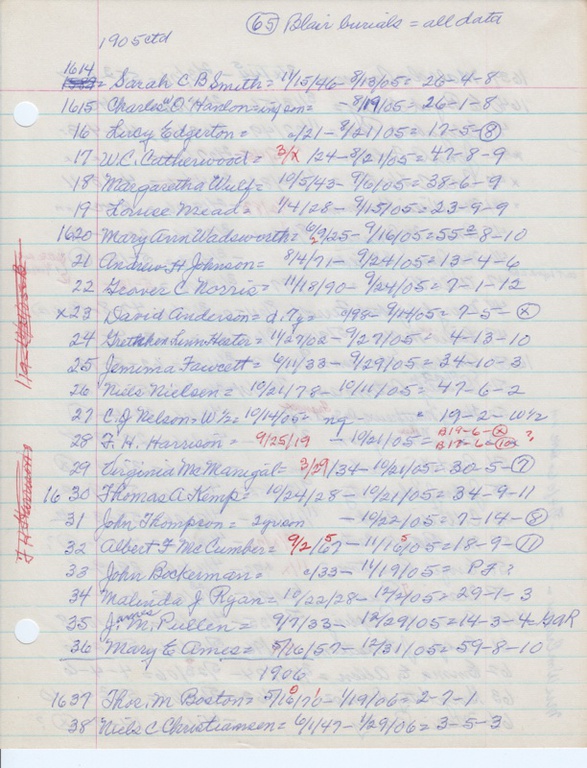 65 Blair burials = all data
1905 ctd
1614 = Sarah C B Smith = 11/15/46 - 8/13/05 = 26-4-8
1615 Charles "O" Hanlon = inf son = - 8/19/05 = 26-1-8
16 Lucy Edgerton = c/21 - 8/21/05 = 17-5-8
17 W.C. Catherwood = 3/x /24 - 8/21/05 = 47-8-9
18 Margaretha Wulf = 10/5/43 - 9/6/05 = 38-6-9
19 Horace Mead = 1/4/28 - 9/15/05 = 23-9-9
1620 Mary Ann Wadsworth = 6/9/25 - 9/16/05 = 55-8-10
21 Andrew H Johnson = 8/4/71 - 9/24/05 = 13-4-6
22 Grover C Norris = 11/18/90 - 9/24/05 = 7-1-12
x23 David Anderson = d. Ty = c/98 - 9/14/05 = 7-5-x
24 Gretchen Linn Hester = 11/27/02 - 9/27/05 = 4-13-10
25 Jemima Fawcett = 6/11/33 - 9/29/05 = 34-10-3
26 Niels Nielsen = 10/21/78 - 10/11/05 = 47-6-2
27 C.J. Nelson = W 1/2 = 10/14/05 = ng " 19-2-W 1/2
28 F. H. Harrison = 9/25/19 - 10/21/05 = B19-6-x
B17-6-10 ?
29 Virginia McManigal = 3/29/34 - 10/21/05 = 30-5-7
1630 Thomas A Kemp = 10/24/28 - 10/21/05 = 34-9-11
31 John Thompson = 2 yr son - 10/22/05 = 7-14-8
32 Albert F McCumber = 9/2/67 - 11/16/05 = 18-9-11
33 John Bockerman = c/33 - 11/19/05 = PF ?
34 Malinda J Ryan = 10/22/28 - 12/2/05 = 29-1-3
35 James M. Pullen = 9/7/33 - 12/29/05 = 14-3-4 = GAR
36 Mary E Ames = 5/16/57 - 12/31/05 = 59-8-10
1906
1637 Thos. M Boston = 5/16/70 - 1/19/06 = 2-7-1
38 Niels C Christiansen = 6/1/47 - 1/29/06 = 3-5-3